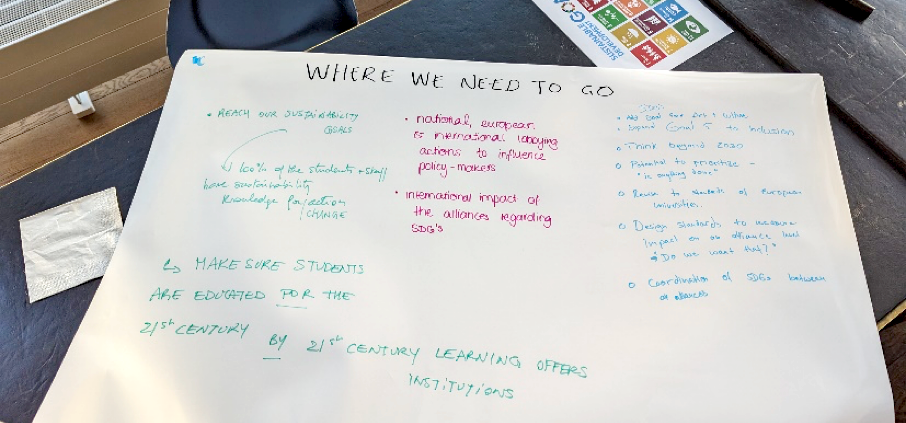 SUSTAINABLE
DEVELOPMENT
WHERE WE NEED TO GO
• REACH OUR SUSTAINABILITY
GOALS
100% of the students + staff
have sustainability
knowledge for/action
/CHANGE
↳ MAKE SURE STUDENTS
ARE EDUCATED FOR THE
21st CENTURY BY 21st CENTURY LEARNING OFFERS
INSTITUTIONS
• national, european
& international lobbying
actions to influence
policy-makers
• International impact of
the alliances regarding
SDG's
SDGs
Goal for Arts & Culture
Expand Goal 5 to inclusion
Think beyond 2030
Potential to prioritize -
"is anything done"
to students of European
Universities.
Design standards to measure
impact on an alliance level
"Do we want that?"
Coordination of SDGs between
alliances